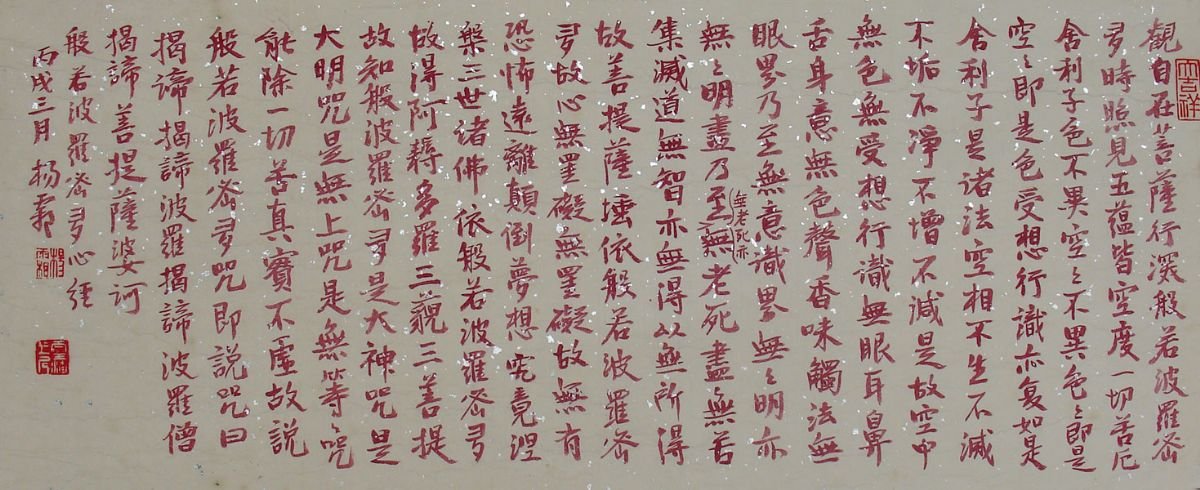 觀自在菩薩行深般若波羅密
多時照見五蕴皆空度一切苦厄
舍利子色不異空〻不異色〻即是
空〻即是色受想行識亦复如是
舍利子是诸法空相不生不滅
不垢不淨不增不減是故空中
無色無受想行識無眼耳鼻
舌身意無色聲香味觸法無
眼界乃至無意識界無〻明亦
無〻明盡乃至(無老死亦無老死盡無苦
集滅道無智亦無得以無所得
故菩提薩埵依般若波羅密
多故心無罣礙無罣礙故無有
恐怖遠離顛倒夢想究竟涅
槃三世诸佛依般若波羅密多
故得阿耨多羅三藐三菩提
故知般波羅密多是大神咒是
大明咒是無上咒是無等咒
能除一切苦真實不虛故説
般若波羅密多咒即説咒曰
揭諦揭諦波羅揭諦波羅僧
揭諦菩提薩婆訶
般若波羅密多心經
丙戌三月杨霜